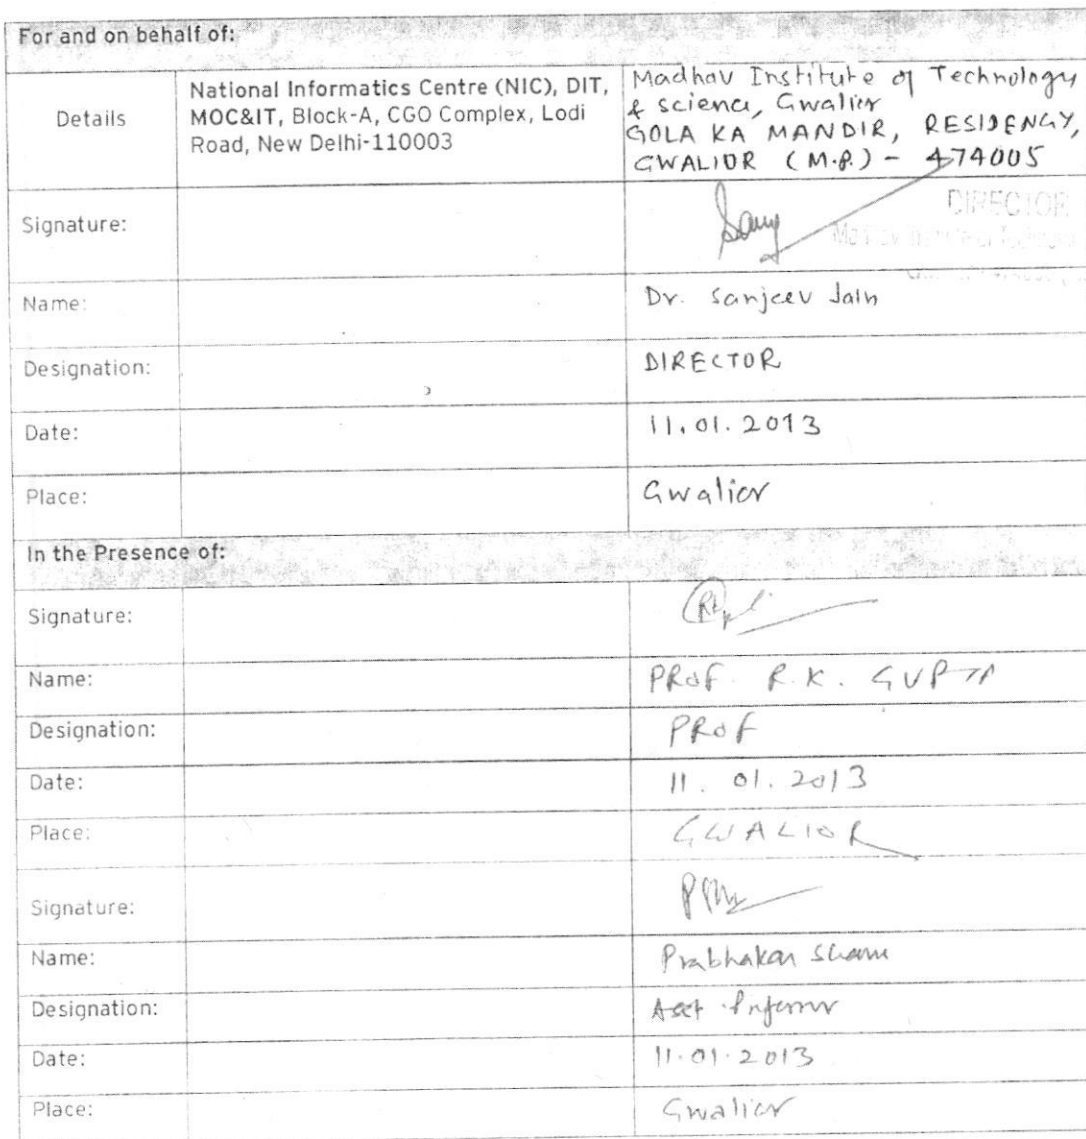 For and on behalf of:
Details
National Informatics Centre (NIC), DIT,
MOC&IT, Block-A, CGO Complex, Lodi
Road, New Delhi-110003
Madhav Institute of Technology
& science, Gwalior
GOLA KA MANDIR, RESIDENCY,
GWALIOR (M.P.) - 474005
Signature:
DIRECTOR
Name:
Dr. Sanjeev Jain
Designation:
DIRECTOR
Date:
11.01.2013
Place:
Gwalior
In the Presence of:
Signature:
Name:
PROF. R.K. GUPTA
Designation:
PROF
Date:
11. 01. 2013
Place:
GWALIOR
Signature:
Name:
Prabhakar
Designation:
Date:
11.01.2013
Place:
Gwalior